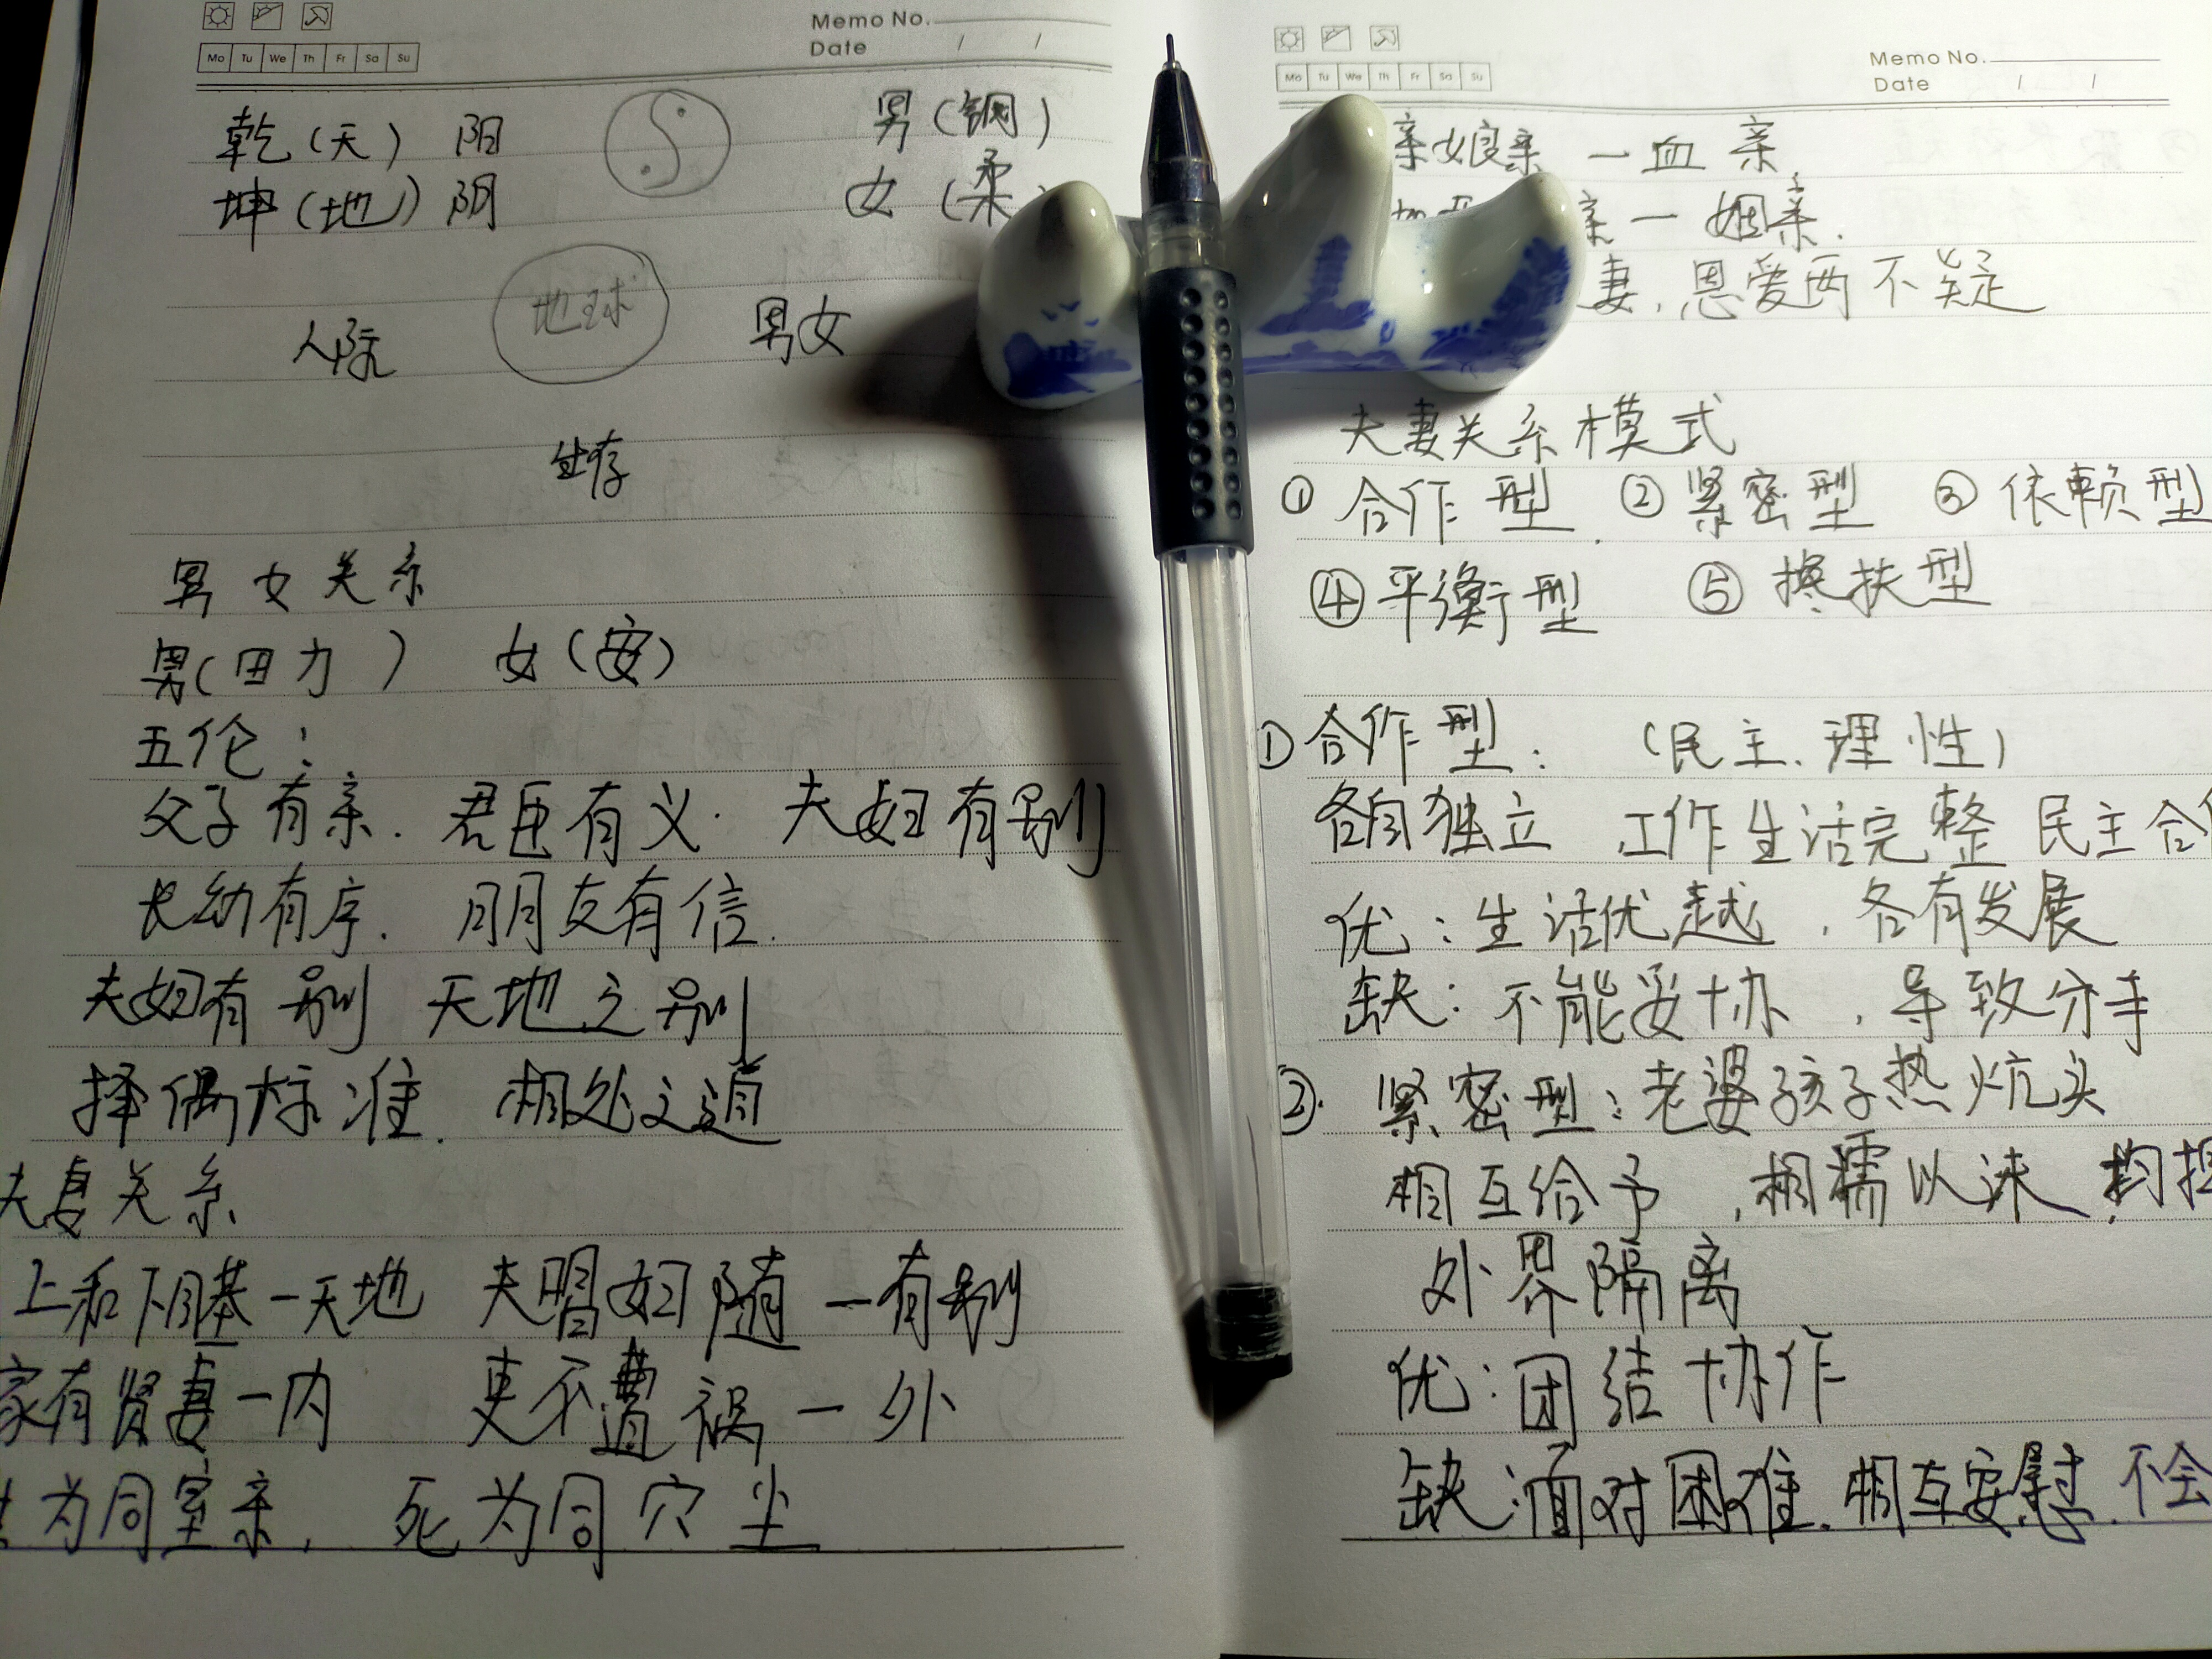 Memo No.
Date / /
Mo Tu We Th Fr Sa Su
乾(天) 阳 男(钢)
坤(地) 阴 女(柔
人际 地球 男女
生存
男女关系
男(田力) 女(安)
五伦:
父子有亲. 君臣有义. 夫妇有别
长幼有序. 朋友有信.
夫妇有别 天地之别
择偶标准. 相处之道
夫妻关系
上和下睦—天地 夫唱妇随—有别
家有贤妻—内 更不遭祸—外
为同室亲, 死为同穴尘
Memo No.
Date / /
Mo Tu We Th Fr Sa Su
亲娘亲—血亲
亲—姻亲.
妻,恩爱两不疑
夫妻关系模式
① 合作型. ② 紧密型 ③ 依赖型
④ 平衡型 ⑤ 搀扶型
① 合作型: (民主、理性)
各自独立 工作生活完整 民主合作
优:生活优越,各有发展
缺:不能妥协,导致分手
②. 紧密型:老婆孩子热炕头
相互给予,相濡以沫,
外界隔离
优:团结协作
缺:面对困难.相互安慰.不会